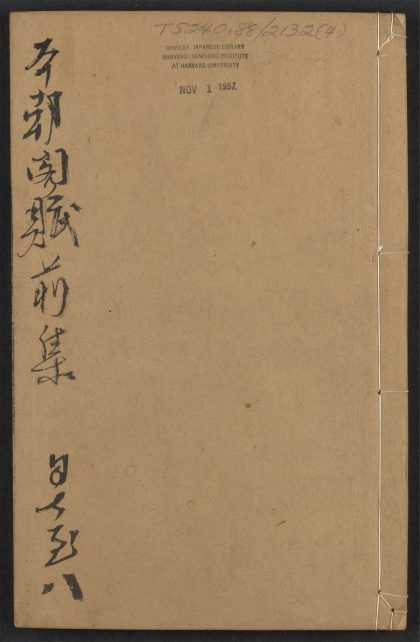 T5240.88/2132(4)
CHINESE-JAPANESE LIBRARY
HARVARD-YENCHING INSTITUTE
AT HARVARD UNIVERSITY
NOV 1 1957
本朝閣賦前集
自七至八